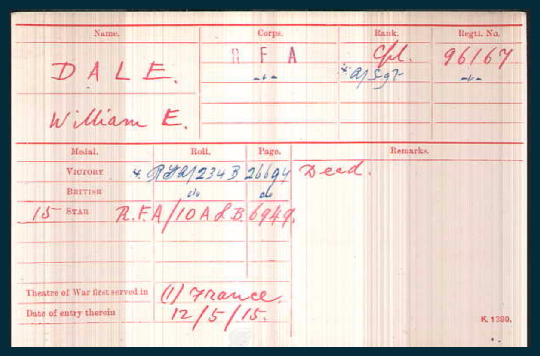 Name. Corps. Rank. Regtl. No.
DALE. R F A Cpl. 96167
-"- * A/Sgt -"-
William E.
Medal. Roll. Page. Remarks.
VICTORY * RFA/234B 26694 Deed.
BRITISH do do
15 STAR R.F.A/10A L.B. 6949.
Theatre of War first served in (1) France.
Date of entry therein 12/5/15.
K. 1380.